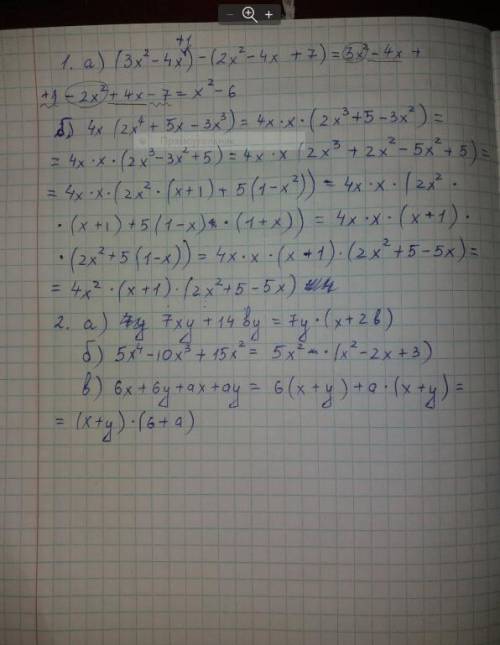 +1
1. а) (3x² - 4x) - (2x² - 4x + 7) = 3x² - 4x +
+1 - 2x² + 4x - 7 = x² - 6
б) 4x (2x⁴ + 5x - 3x³) = 4x·x·(2x³ + 5 - 3x²) =
= 4x·x·(2x³ - 3x² + 5) = 4x·x (2x³ + 2x² - 5x² + 5) =
= 4x·x·(2x²·(x+1) + 5(1-x²)) = 4x·x·(2x²·
·(x+1) + 5(1-x)·(1+x)) = 4x·x·(x+1)·
·(2x² + 5(1-x)) = 4x·x·(x+1)·(2x² + 5 - 5x) =
= 4x²·(x+1)·(2x² + 5 - 5x)
2. а) 7xy + 14by = 7y·(x + 2b)
б) 5x⁴ - 10x³ + 15x² = 5x²·(x² - 2x + 3)
в) 6x + 6y + ax + ay = 6(x+y) + a·(x+y) =
= (x+y)·(6+a)